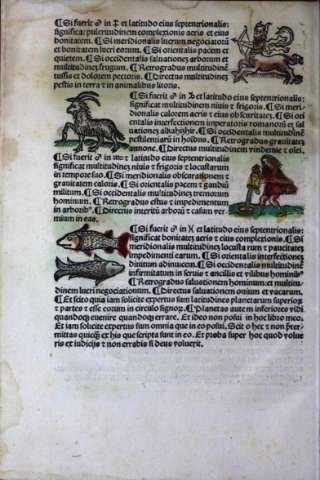 ¶Si fuerit ♂ in ♐ et latitudo eius septentrionalis:
significat pulcritudinem complexionis aeris et eius
bonitatem. ¶Si meridionalis lucrum negociatorū
et bonitatem lucri eorum. ¶Si orientalis pacem et
quietem. ¶Si occidentalis saluationes arborum et
multitudinē frugum. ¶Retrogradus multitudinē
tussis et dolorem pectoris. ¶Directus multitudinēz
pestis in terra et in animalibus litoris.
¶Si fuerit ♂ in ♑ et latitudo eius septentrionalis:
significat multitudinem niuis et frigoris. ¶Si me-
ridionalis calorem aeris et eius obscuritatēs. ¶Si ori-
entalis interfectionem imperatoris romanorū et sal-
uationes alkabihir. ¶Si occidentalis multitudinēz
pestilentiarū in hostibus. ¶Retrogradus grauitatēs
hominum. ¶Directus multitudinem vindemie et olei.
¶Si fuerit ♂ in ♒ et latitudo eius septentrionalis
significat multitudinē niuis et frigoris et locustarum
in tempore suo. ¶Si meridionalis obscurationem et
grauitatem caloris. ¶Si orientalis pacem et gaudiū
militum. ¶Si occidentalis multitudinez tremorum
hominum. ¶Retrogradus estus et impedimentum
in arboribꝰ. ¶Directus interitū arborū et casum ver-
mium in eas.
¶Si fuerit ♂ in ♓ et latitudo eius septentrionalis
significat bonitates aeris et eius complexionis. ¶Si
meridionalis multitudinez locusta rum et paucitates
impedimenti earum. ¶Si orientalis interfectionēz
diuitum adinuicem. ¶Si occidentalis multitudinez
infirmitatum in seruis et ancillis et vilibus hominibꝰ
¶Retrogradus saluationem hominum et multitu-
dinem lucri negociationum. ¶Directus saluationem ouium et vacarum.
¶Et scito quia iam solicite expertus sum latitudines planetarum superioꝝ
et partes et esse eorum in circulo signoꝝ. ¶Planetas autem inferiores vidi
quandoqꝫ euenire quandoqꝫ errare. Et ideo non posui in hoc libro meo.
Et iam solicite expertus sum omnia que in eo posui. Scito hec et non p̄ter-
mittas quicqꝫ ex his que scripta sunt in eo. Et proba super hoc quod volue
ris et iudicijs et non errabis si deus voluerit.